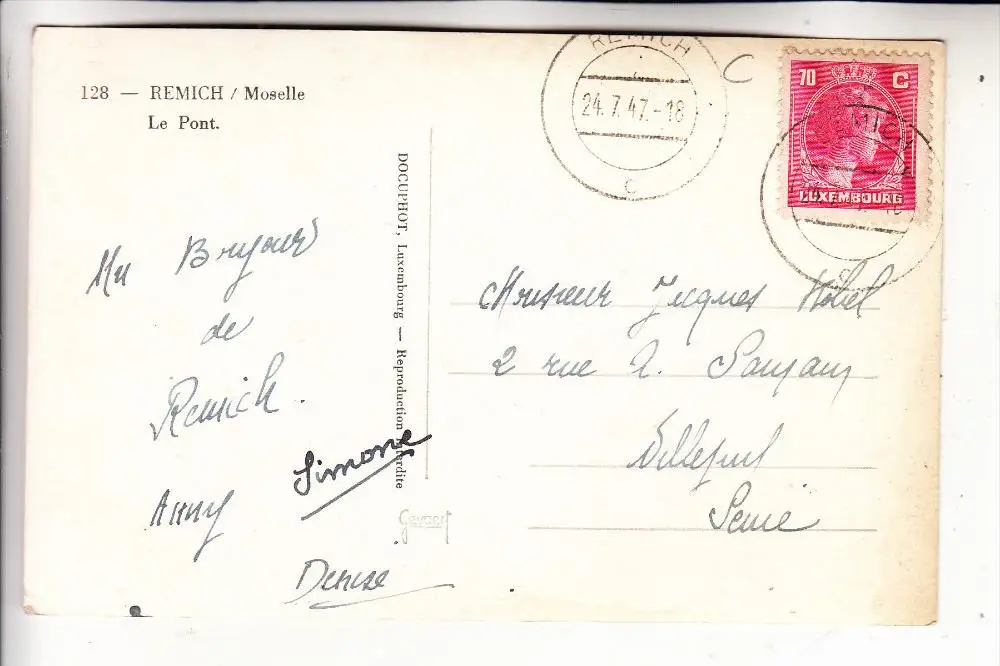 128 — REMICH / Moselle
Le Pont.
REMICH
24.7.47.-18
C
70 C
LUXEMBOURG
REMICH
DOCUPHOT, Luxembourg — Reproduction interdite
Un Bonjour
de
Remich.
Simone
Anny
Denise
Gevaert
Monsieur Jacques
2 rue
Villejuif
Seine